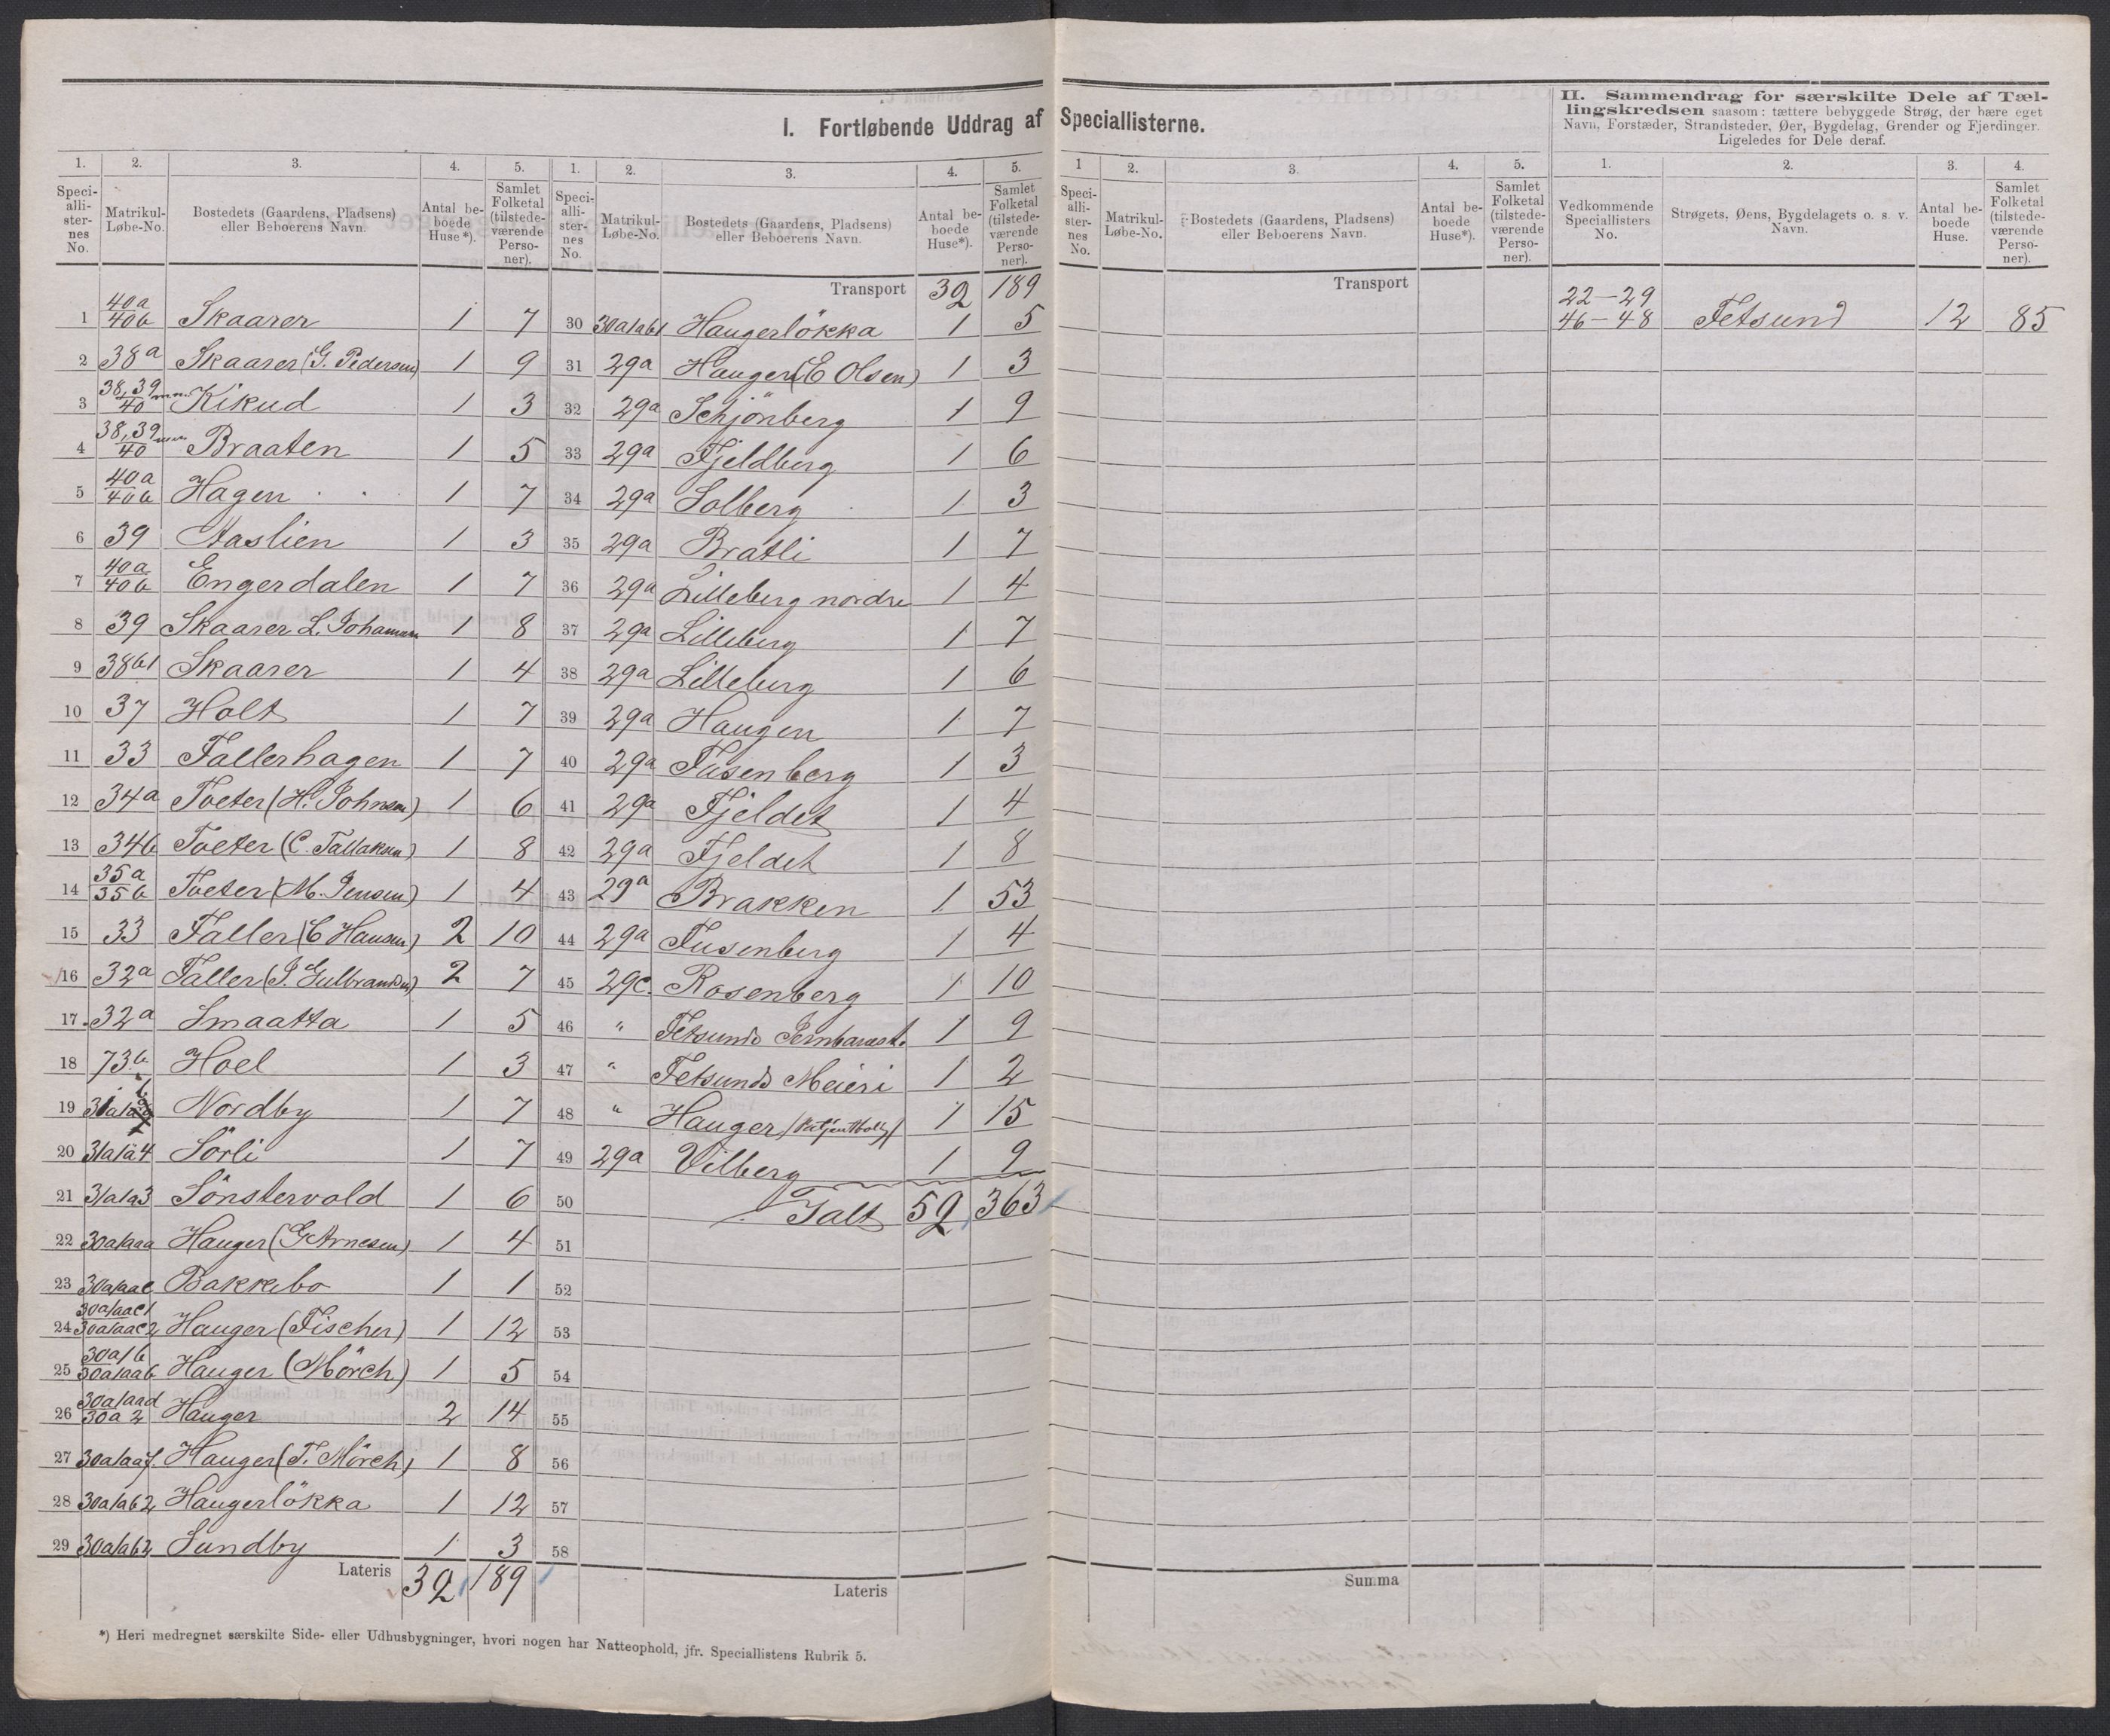 I. Fortløbende Uddrag af Speciallisterne.
II. Sammendrag for særskilte Dele af Tæl-
lingskredsen saasom: tættere bebyggede Strøg, der bære eget
Navn, Forstæder, Strandsteder, Øer, Bygdelag, Grender og Fjerdinger.
Ligeledes for Dele deraf.
1. 2. 3. 4. 5. 1. 2. 3. 4. 5. 1 2. 3. 4. 5. 1. 2. 3. 4.
Speci-alli-ster-nes No. Matrikul-Løbe-No. Bostedets (Gaardens, Pladsens) eller Beboerens Navn. Antal be-boede Huse*). Samlet Folketal (tilstede-værende Perso-ner).
Speci-alli-ster-nes No. Matrikul-Løbe-No. Bostedets (Gaardens, Pladsens) eller Beboerens Navn. Antal be-boede Huse*). Samlet Folketal (tilstede-værende Perso-ner).
Speci-alli-ster-nes No. Matrikul-Løbe-No. Bostedets (Gaardens, Pladsens) eller Beboerens Navn. Antal be-boede Huse*). Samlet Folketal (tilstede-værende Perso-ner).
Vedkommende Speciallisters No. Strøgets, Øens, Bygdelagets o. s. v. Navn. Antal be-boede Huse. Samlet Folketal (tilstede-værende Perso-ner).
1 40a 40b Skaarer 1 7
2 38a Skaarer (G. Pedersen) 1 9
3 38,39 40 Kikud 1 3
4 38,39 40 Braaten 1 5
5 40a 40b Hagen 1 7
6 39 Aaslien 1 3
7 40a 40b Engerdalen 1 7
8 39 Skaarer L. Johansen 1 8
9 38b1 Skaarer 1 4
10 37 Holt 1 7
11 33 Fallerhagen 1 7
12 34a Toeter (H. Johnsen) 1 6
13 34b Toeter (C. Tallaksen) 1 8
14 35a 35b Toeter (M. Jensen) 1 4
15 33 Faller (C Hansen) 2 10
16 32a Faller (J. Gulbrandsen) 2 7
17 32a Smaatta 1 5
18 73b Hoel 1 3
19 Nordby 1 7
20 31a1a4 Sörli 1 7
21 31a1a3 Sönstervold 1 6
22 30a1aaa Hauger (G Arnesen) 1 4
23 30a1aac Bakkebo 1 1
24 30a1aac1 30a1aac2 Hauger (Fischer) 1 12
25 30a1b 30a1aab Hauger (Mörch) 1 5
26 30a1aad 30a2 Hauger 2 14
27 30a1aaf. Hauger (T. Mörch) 1 8
28 30a1ab2 Haugerlökka 1 12
29 30a1ab2 Sundby 1 3
Lateris 32 189
Transport 32 189
30 30a1ab1 Haugerlökka 1 5
31 29a Hauger (E Olsen) 1 3
32 29a Schjönberg 1 9
33 29a Fjeldberg 1 6
34 29a Solberg 1 3
35 29a Bratli 1 7
36 29a Lilleberg nordre 1 4
37 29a Lilleberg 1 7
38 29a Lilleberg 1 6
39 29a Haugen 1 7
40 29a Fusenberg 1 3
41 29a Fjeldet 1 4
42 29a Fjeldet 1 8
43 29a Brakken 1 53
44 29a Fusenberg 1 4
45 29c. Rosenberg 1 10
46 " Fetsunds Jernbanest. 1 9
47 " Fetsunds Meieri 1 2
48 " Hauger 1 15
49 29a Vilberg 1 9
50 Ialt 52 363
51
52
53
54
55
56
57
58
Lateris
Transport
Summa
22-29
46-48 Fetsund 12 85
*) Heri medregnet særskilte Side- eller Udhusbygninger, hvori nogen har Natteophold, jfr. Speciallistens Rubrik 5.